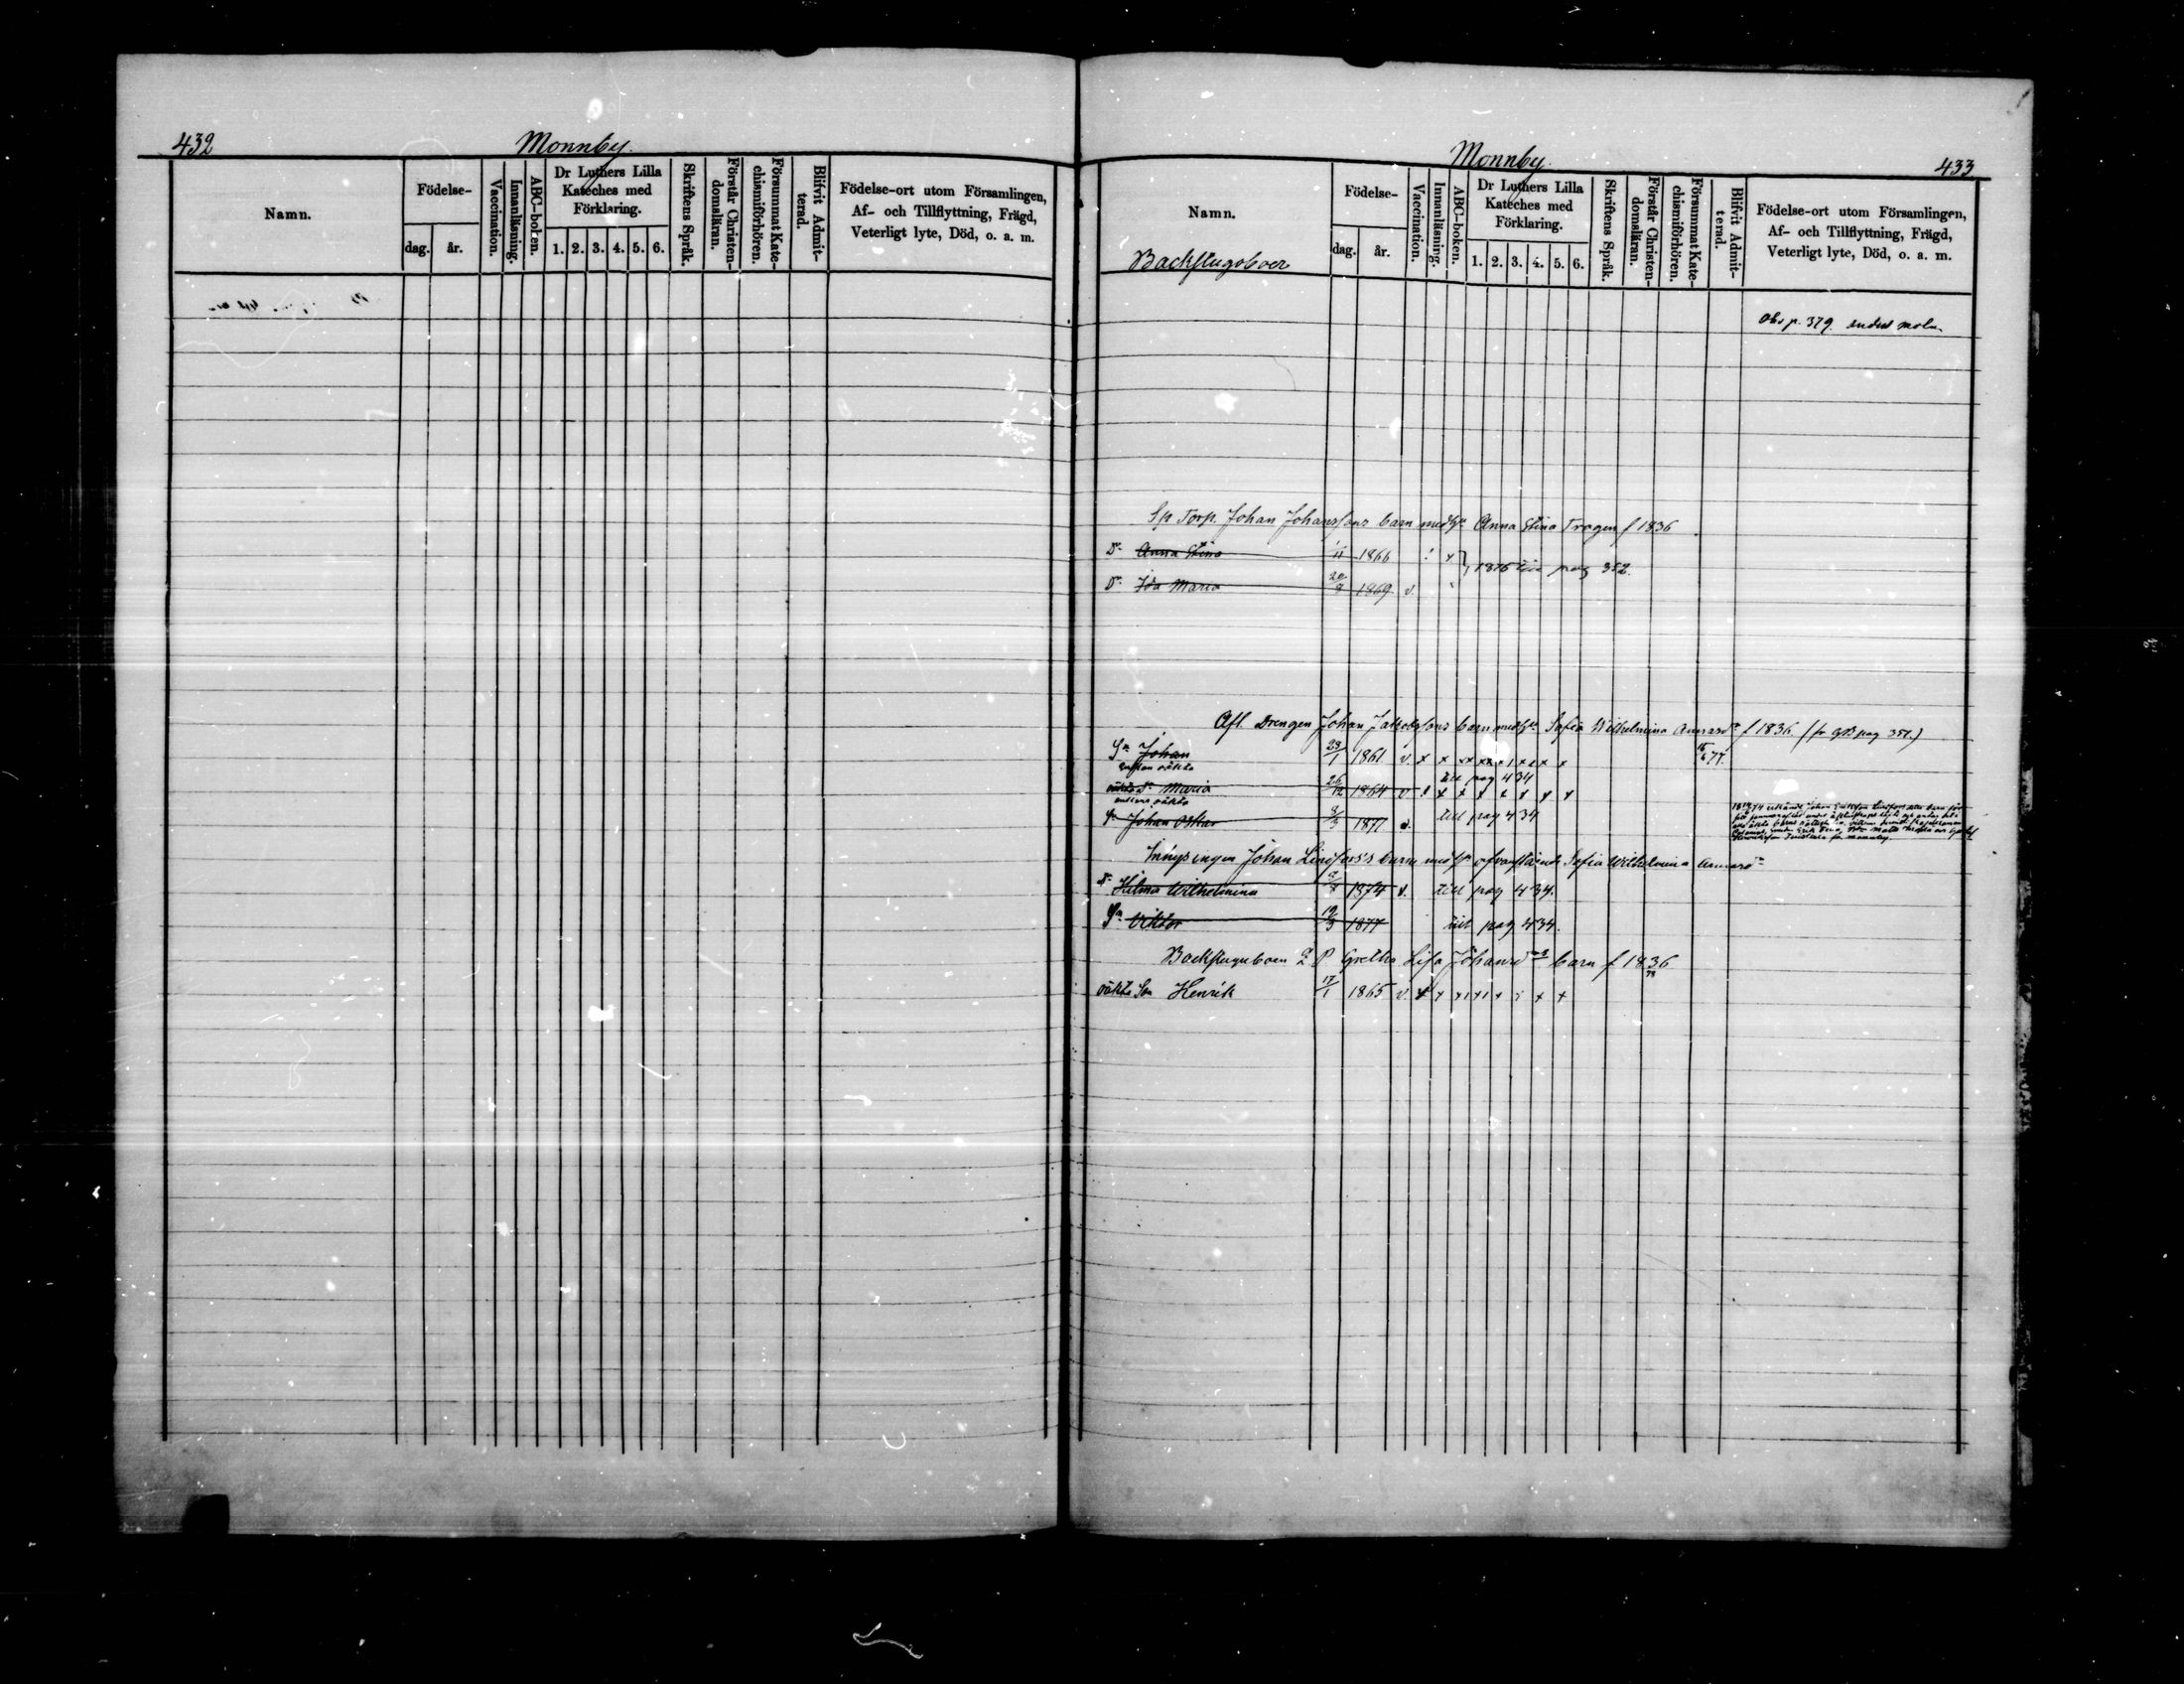 432
Monnby.
Namn.
Födelse-
dag.
år.
Vaccination.
Innanläsning.
ABC-boken.
Dr Luthers Lilla
Kateches med
Förklaring.
1. 2. 3. 4. 5. 6.
Skriftens Språk.
Förstår Christen-
domsläran.
Försummat Kate-
chismiförhören.
Blifvit Admit-
terad.
Födelse-ort utom Församlingen,
Af- och Tillflyttning, Frägd,
Veterligt lyte, Död, o. a. m.
Monnby.
433
Namn.
Backstugoboer
Födelse-
dag.
år.
Vaccination.
Innanläsning.
ABC-boken.
Dr Luthers Lilla
Kateches med
Förklaring.
1. 2. 3. 4. 5. 6.
Skriftens Språk.
Förstår Christen-
domsläran.
Försummat Kate-
chismiförhören.
Blifvit Admit-
terad.
Födelse-ort utom Församlingen,
Af- och Tillflyttning, Frägd,
Veterligt lyte, Död, o. a. m.
Obs p. 379
Sp Torp. Johan Johanssons barn med h. Anna Stina Trogen f 1836
Dr Anna Stina 1866
1876 till pag 352.
Dr Ida Maria 20/8 1869. v.
Afl. Drengen Johan Jakobssons barn med h. Sofia Wilhelmina Annasdr f 1836.
Sn Johan 28/1 1861 v. x x xx xx x x x x 77.
till pag 434
oäkta Dr Maria 26/12 1864 v x x x x x x x
till pag 434
Sn Johan Oskar 8/3 1871 v.
Inhysingen Johan Lindfors's barn med h. ofvanstående Sofia Wilhelmina Annasdr
Dr Hilma Wilhelmina 1874 v. till pag 434.
Sn Viktor 19/3 1877 till pag 434.
Backstuguboen Gretha Lisa Johansdrs barn f 1836
oäkta Son Henrik 17/1 1865 v. x x x x x x x x x